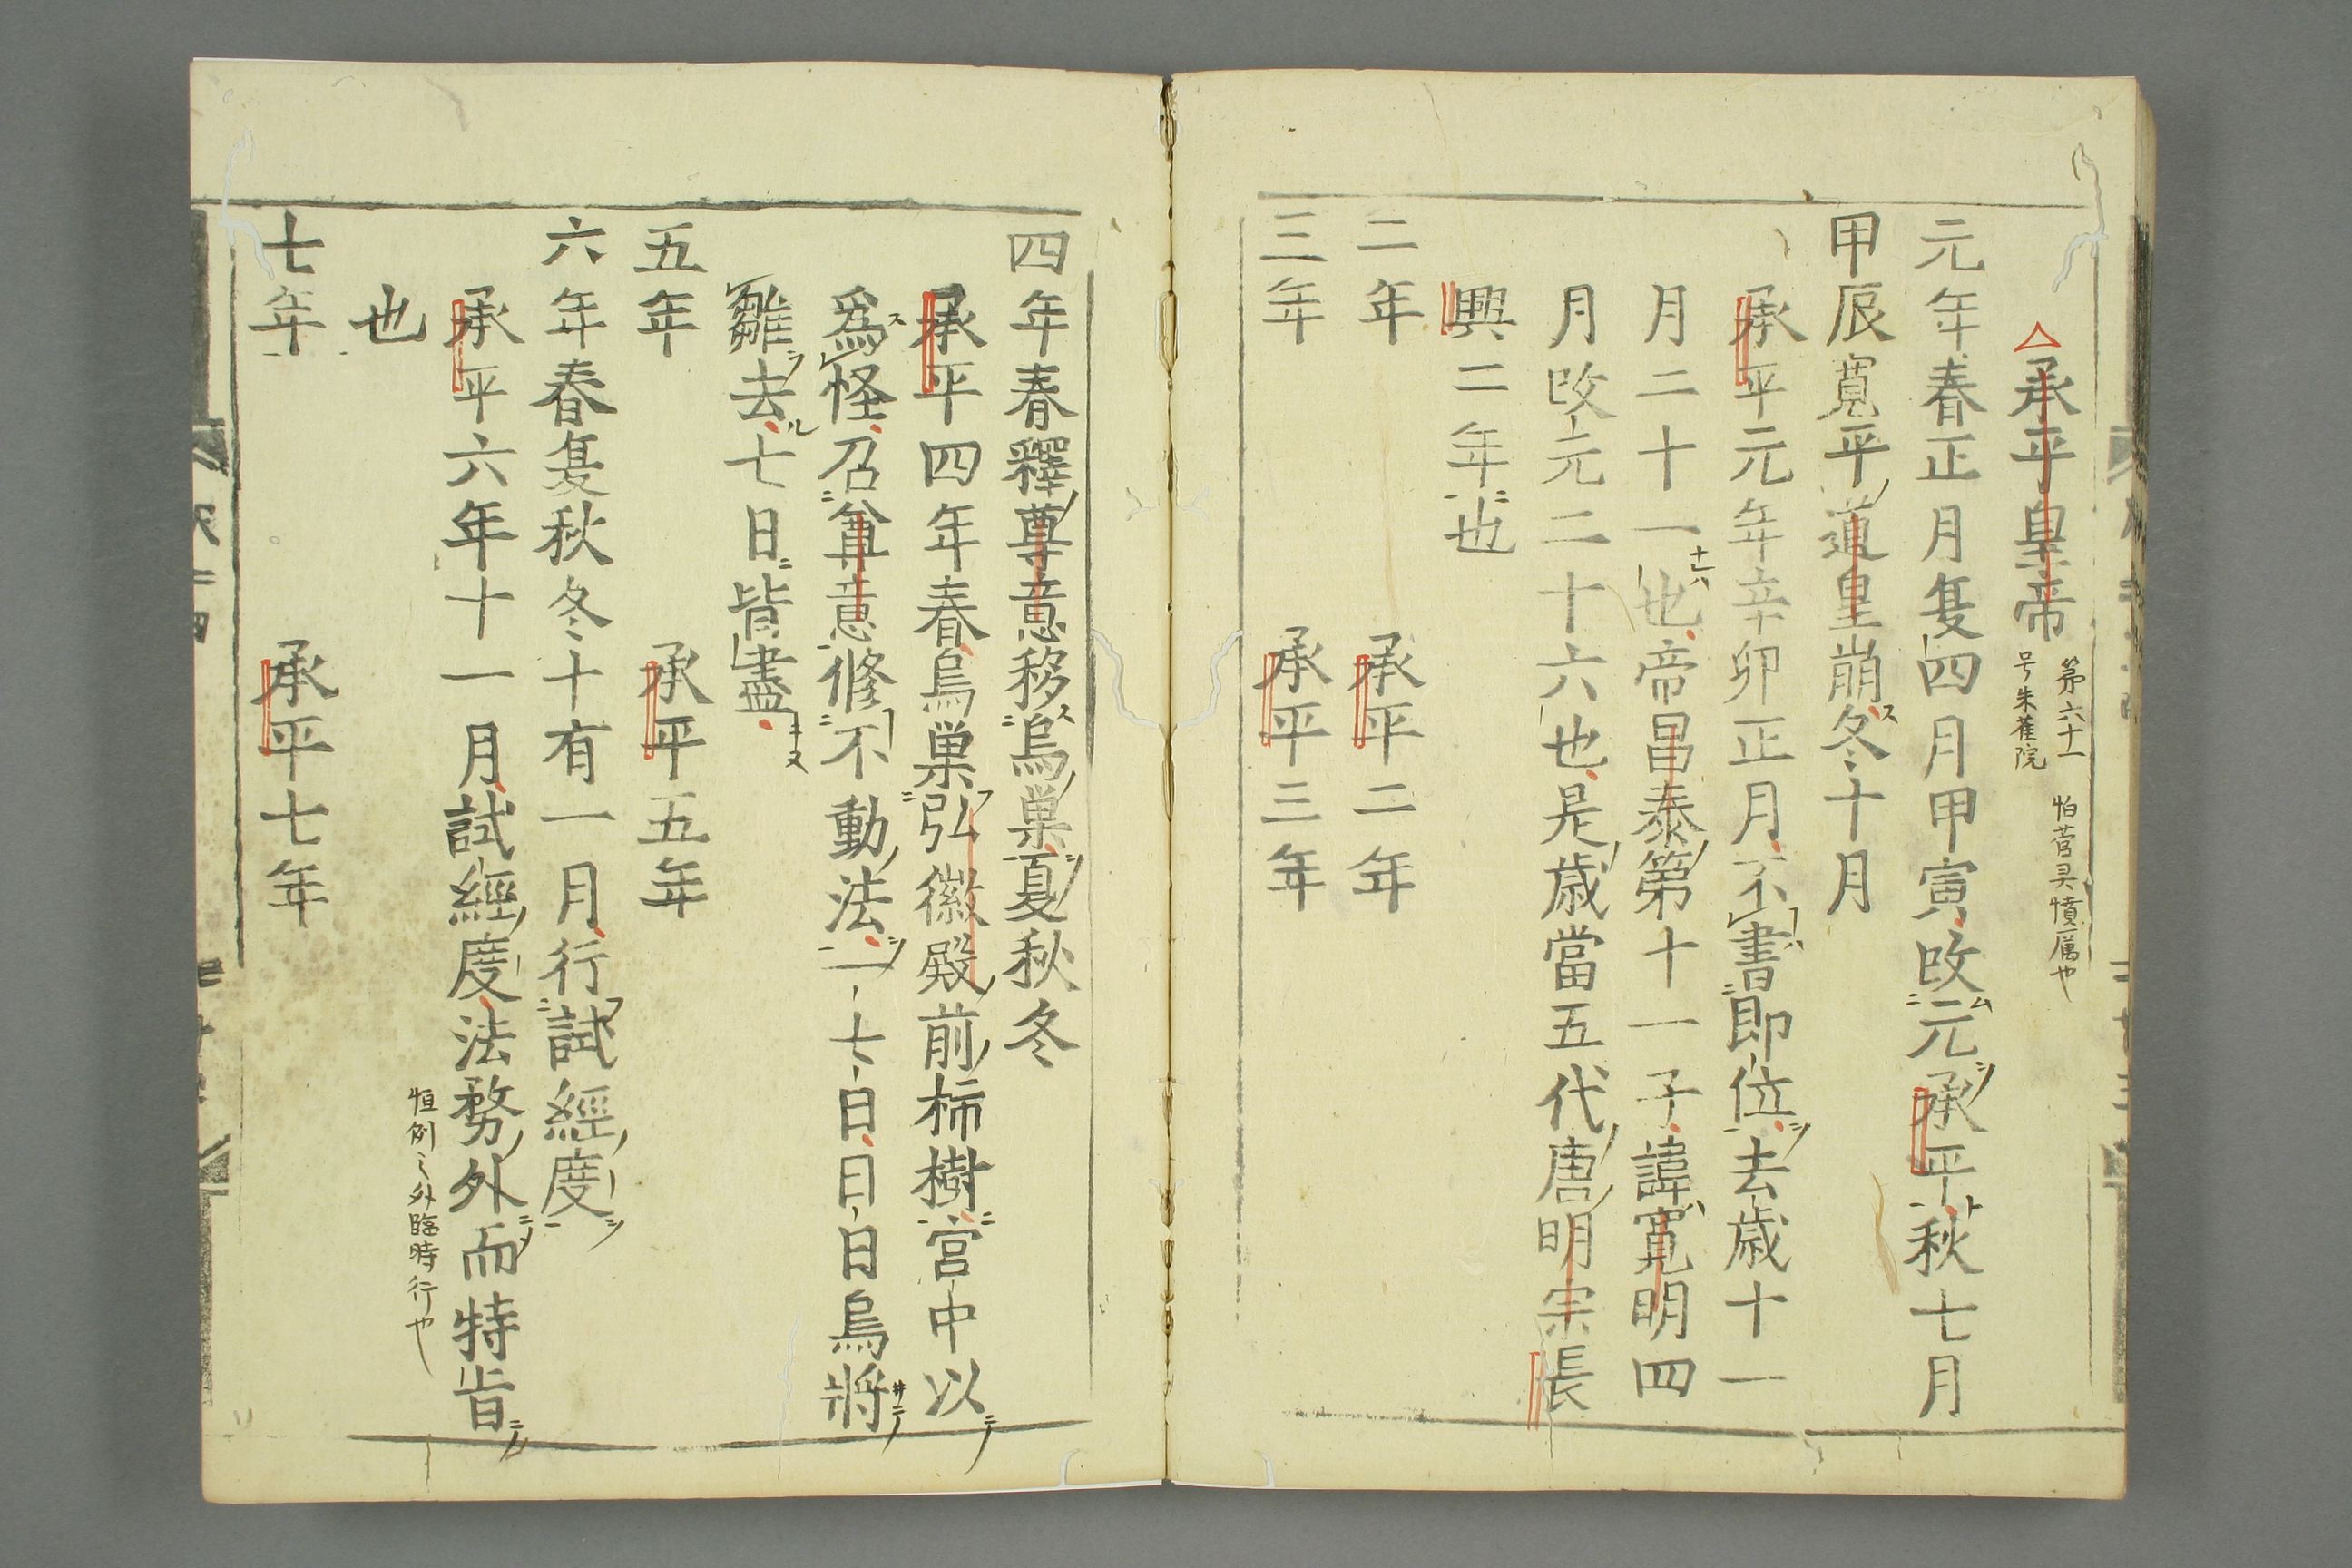 承平皇帝
第六十一
号朱雀院
怕菅灵憤厲也
元年春正月夏四月甲寅改元承平秋七月
甲辰寬平道皇崩冬十月
承平元年辛卯正月不書即位去歲十一
月二十一也帝昌泰第十一子諱寬明四
十六
月改元二十六也是歲當五代唐明宗長
興二年也
二年 承平二年
三年 承平三年
四年春釋尊意移烏巢夏秋冬
承平四年春烏巢弘徽殿前柿樹宮中以
為怪召尊意修不動法一七日日日烏將
雛去七日皆盡
五年 承平五年
六年春夏秋冬十有一月行試經度
承平六年十一月試經度法務外而特旨
恒例之外臨時行也
也
七年 承平七年